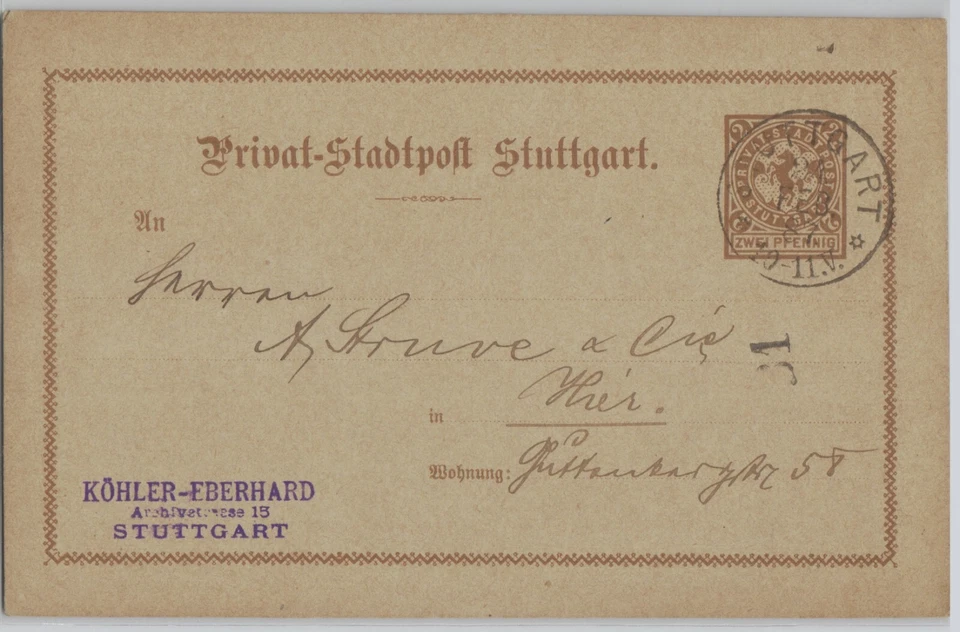 Privat-Stadtpost Stuttgart.
2 2
PRIVAT-STADTPOST
STUTTGART
ZWEI PFENNIG
STUTTGART
FEB
87
10-11.V.
An
Herren
A. Struve & Cie
31
in Hier.
Wohnung: Guttenbergstr 58
KÖHLER-EBERHARD
Archivstrasse 15
STUTTGART